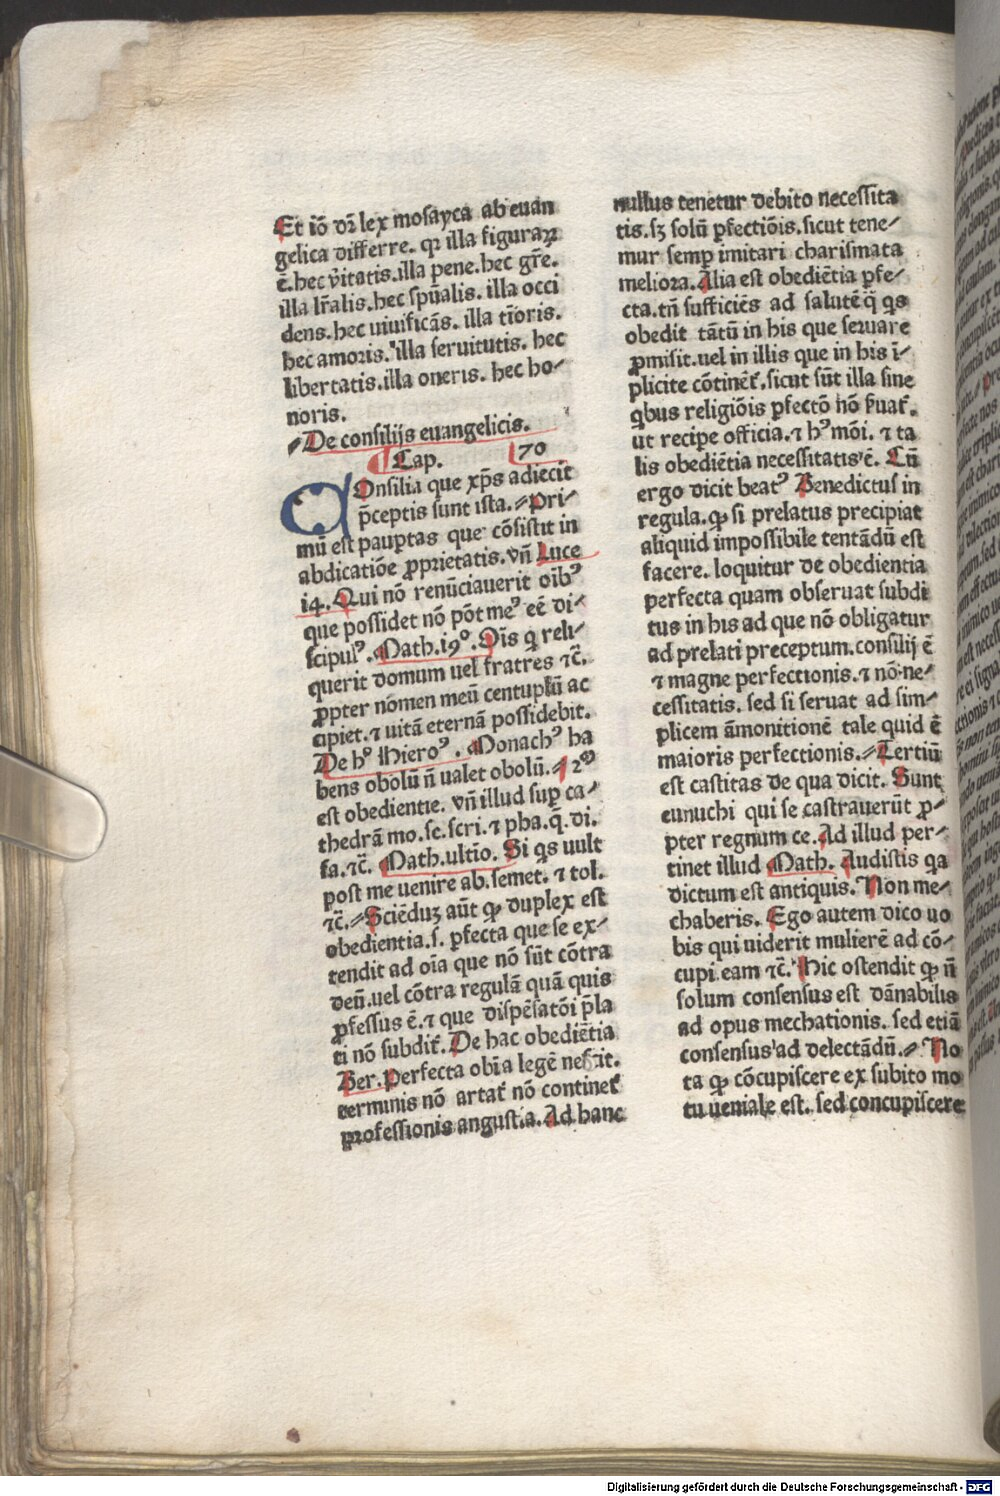 Et iō dr̄ lex mosayca ab euan
gelica differre. qꝛ illa figuraꝝ
ē. hec v̄itatis. illa pene. hec gr̄e.
illa lr̄alis. hec spūalis. illa occi
dens. hec uiuificās. illa tīoris.
hec amoris. illa seruitutis. hec
libertatis. illa oneris. hec ho⸗
noris.
⸗De consilijs euangelicis.
¶ Cap. 70
COnsilia que xp̄s adiecit
p̄ceptis sunt ista.⸗Pri⸗
mū est pauꝑtas que cōsistit in
abdicatiōe ꝓprietatis. vn̄ Luce
14. Qui nō renūciauerit oībꝰ
que possidet nō pōt meꝰ eē di⸗
scipulꝰ. Math. 19°. Oīs q̄ reli⸗
querit domum uel fratres ⁊c̄.
ꝓpter nomen meū centuplū ac
cipiet. ⁊ uitā eternā possidebit.
De hꝰ Hieroꝰ. Monachꝰ ha
bens obolū n̄ ualet obolū.⸗2ᵐ
est obedientie. vn̄ illud suꝑ ca⸗
thedrā mo. se. scri. ⁊ pha. q̄. di.
fa. ⁊c̄. Math. ultīo. Si q̄s uult
post me uenire ab. semet. ⁊ tol.
⁊c̄.⸗Sciēduꝫ aūt ꝙ duplex est
obedientia. s. ꝑfecta que se ex⸗
tendit ad oīa que nō sūt cōtra
deū. uel cōtra regulā quā quis
ꝓfessus ē. ⁊ que dispēsatōi p̄la
ti nō subdit̄. De hac obediētia
Ber. Perfecta obīa legē nescit.
terminis nō artat̄ nō continet̄
professionis angustia. Ad hanc
nullus tenetur debito necessita
tis. sꝫ solū ꝑfectiōis. sicut tene⸗
mur semꝑ imitari charismata
meliora. Alia est obediētia ꝑfe⸗
cta. tn̄ sufficiēs ad salutē q̄ q̄s
obedit tātū in his que seruare
ꝓmisit. uel in illis que in his ī⸗
plicite cōtinēt̄. sicut sūt illa sine
q̄bus religiōis ꝑfectō nō ẜuat̄.
ut recipe officia. ⁊ hꝰ mōi. ⁊ ta
lis obediētia necessitatis ē. Cū
ergo dicit beatꝰ Benedictus in
regula. ꝙ si prelatus precipiat
aliquid impossibile tentādū est
facere. loquitur de obedientia
perfecta quam obseruat subdi
tus in his ad que nō obligatur
ad prelati preceptum. consilij ē
⁊ magne perfectionis. ⁊ nō ne⸗
cessitatis. sed si seruat ad sim⸗
plicem āmonitionē tale quid ē
maioris perfectionis.⸗Tertiū
est castitas de qua dicit. Sunt
eunuchi qui se castrauerūt ꝓ⸗
pter regnum ce. Ad illud per⸗
tinet illud Math. Audistis qa
dictum est antiquis. Non me⸗
chaberis. Ego autem dico uo
bis qui uiderit mulierē ad cō⸗
cupi. eam ⁊c̄. Hic ostendit ꝙ n̄
solum consensus est dānabilis
ad opus mechationis. sed etiā
consensus ad delectādū.⸗No
ta ꝙ cōcupiscere ex subito mo
tu ueniale est. sed concupiscere
Digitalisierung gefördert durch die Deutsche Forschungsgemeinschaft - DFG